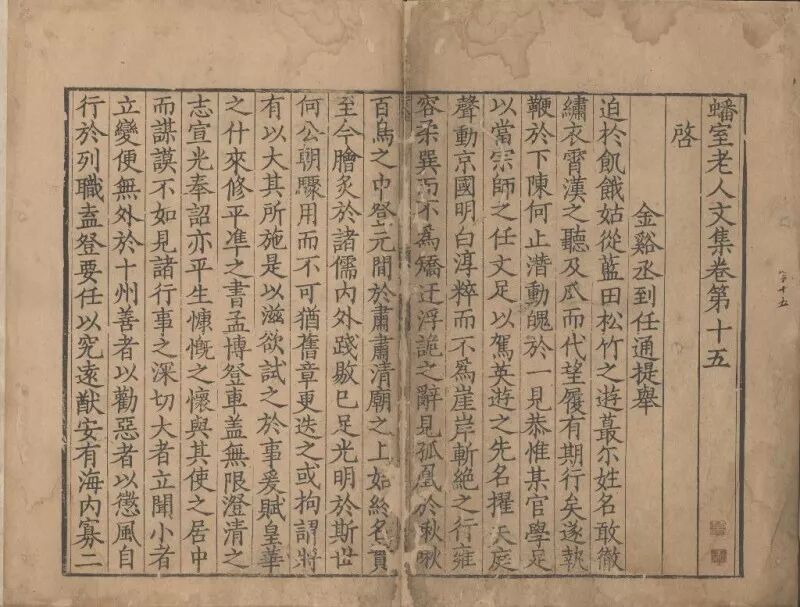 蟠室老人文集卷第十五
啓
金谿丞到任通提舉
迫於飢餓姑從藍田松竹之遊蕞尒姓名敢徹
繡衣霄漢之聽及瓜而代望履有期行矣遂執
鞭於下陳何止潛動魄於一見恭惟某官學足
以當宗師之任文足以駕英遊之先名擢天庭
聲動京國明白淳粹而不爲崖岸斬絕之行雍
容柔巽而不爲矯迂浮詭之辭見孤凰於啾啾
百鳥之中登元間於肅肅清廟之上如終名貫
至今膾炙於諸儒內外踐敭已足光明於斯世
何公朝驟用而不可猶舊章更迭之或拘謂將
有以大其所施是以滋欲試之於事爰賦皇華
之什來修平準之書孟博登車盖無限澄清之
志宣光奉詔亦平生慷慨之懷與其使之居中
而謀謨不如見諸行事之深切大者立聞小者
立變便無外於十州善者以勸惡者以懲風自
行於列職盍登要任以究遠猷安有海內寡二